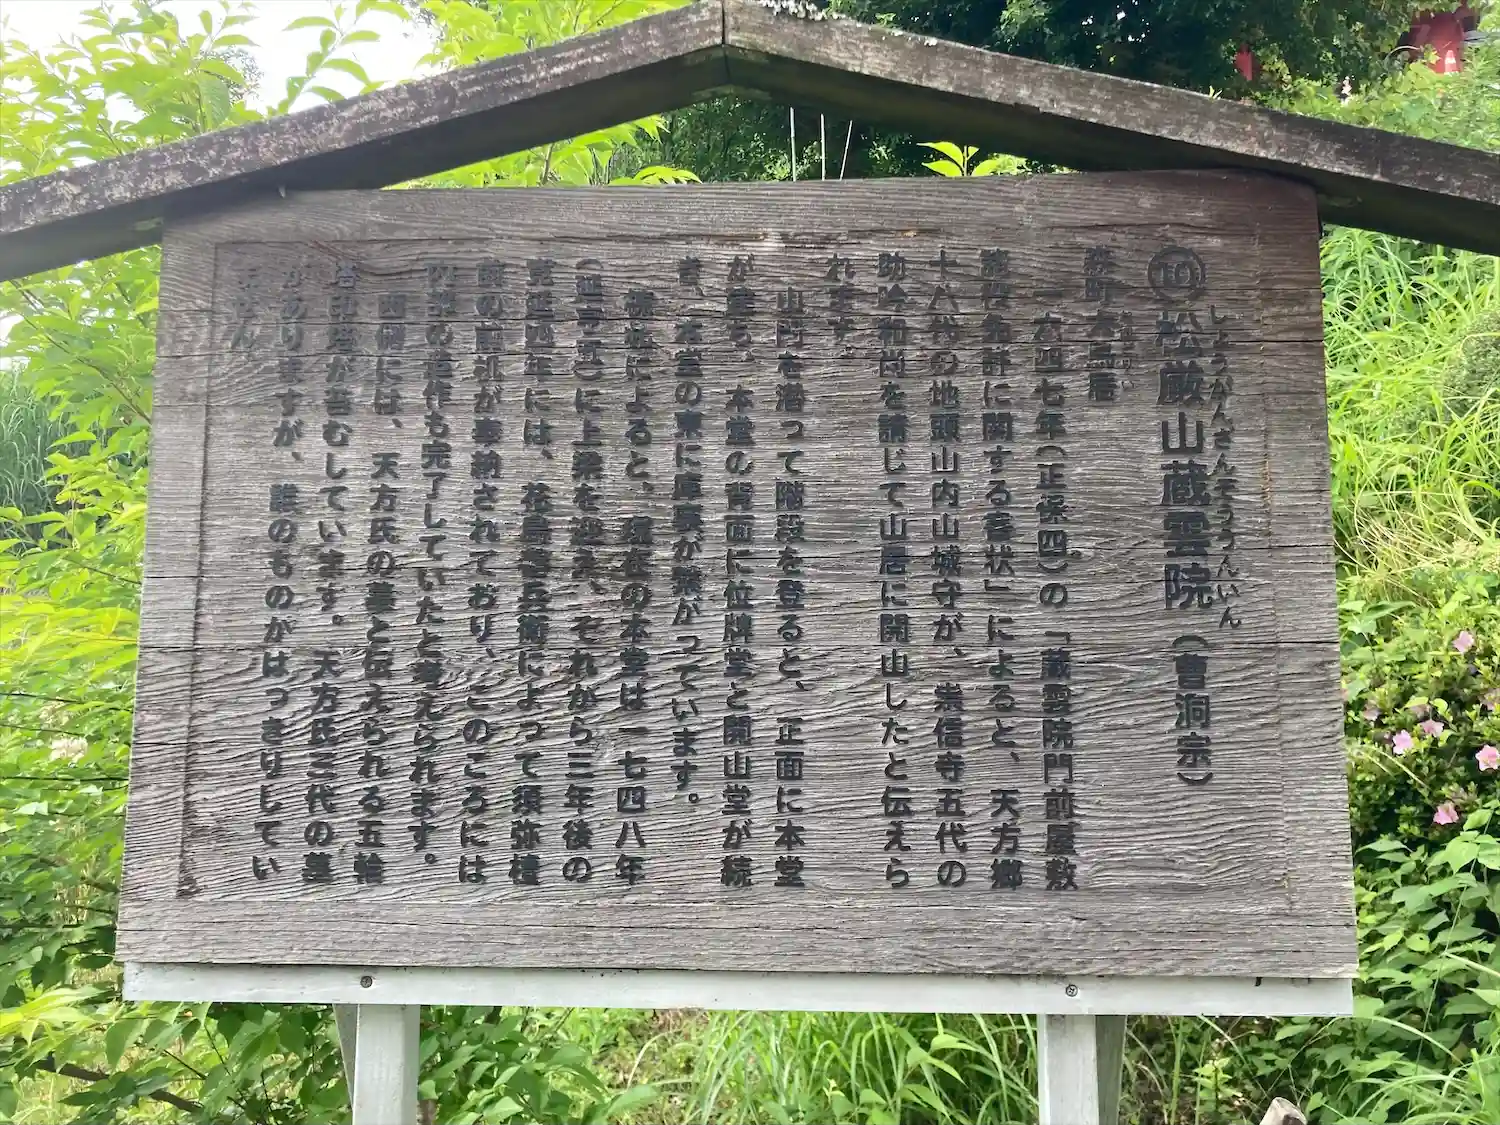 ⑩松厳山蔵雲院（曹洞宗）
しょうがんざんぞううんいん
森町
一六四七年（正保四）の「蔵雲院門前屋敷
諸役免許に関する書状」によると、天方郷
十八代の地頭山内山城守が、崇信寺五代の
助吟和尚を請じて山居に開山したと伝えら
れます。
山門を潜って階段を登ると、正面に本堂
が建ち、本堂の背面に位牌堂と開山堂が続
き、本堂の東に庫裏が繋がっています。
棟札によると、現在の本堂は一七四八年
（延享五）に上梁を迎え、それから三年後の
寛延四年には、花島善兵衛によって須弥檀
の前机が奉納されており、このころには
内部の造作も完了していたと考えられます。
西側には、天方氏の墓と伝えられる五輪
塔印塔が苔むしています。天方氏ご代の墓
がありますが、誰のものがはっきりしてい
ません。